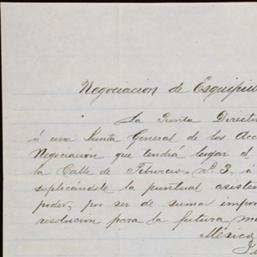 Negociacion de Esquipu
La Junta Direct
á una Junta General de los Acc
Negociacion que tendrá lugar el
la Calle de Tiburcio, nº 3, á
suplicándole la puntual asisten
poder, por ser de suma impor
resolucion para la futura m
México,